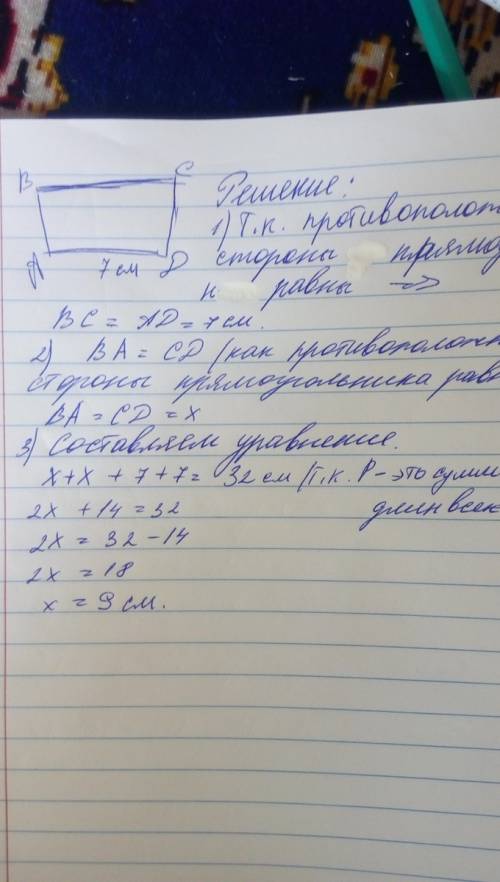 B C
A 7 см D
Решение:
1) Т.к. противополож
стороны прямоу
н равны =>
BC = AD = 7 см.
2) BA = CD (как противополож
стороны прямоугольника рав
BA = CD = x
3) Составляем уравнение.
x+x + 7+7 = 32 см (Т.к. P - это сумм
длин всех
2x + 14 = 32
2x = 32 - 14
2x = 18
x = 9 см.